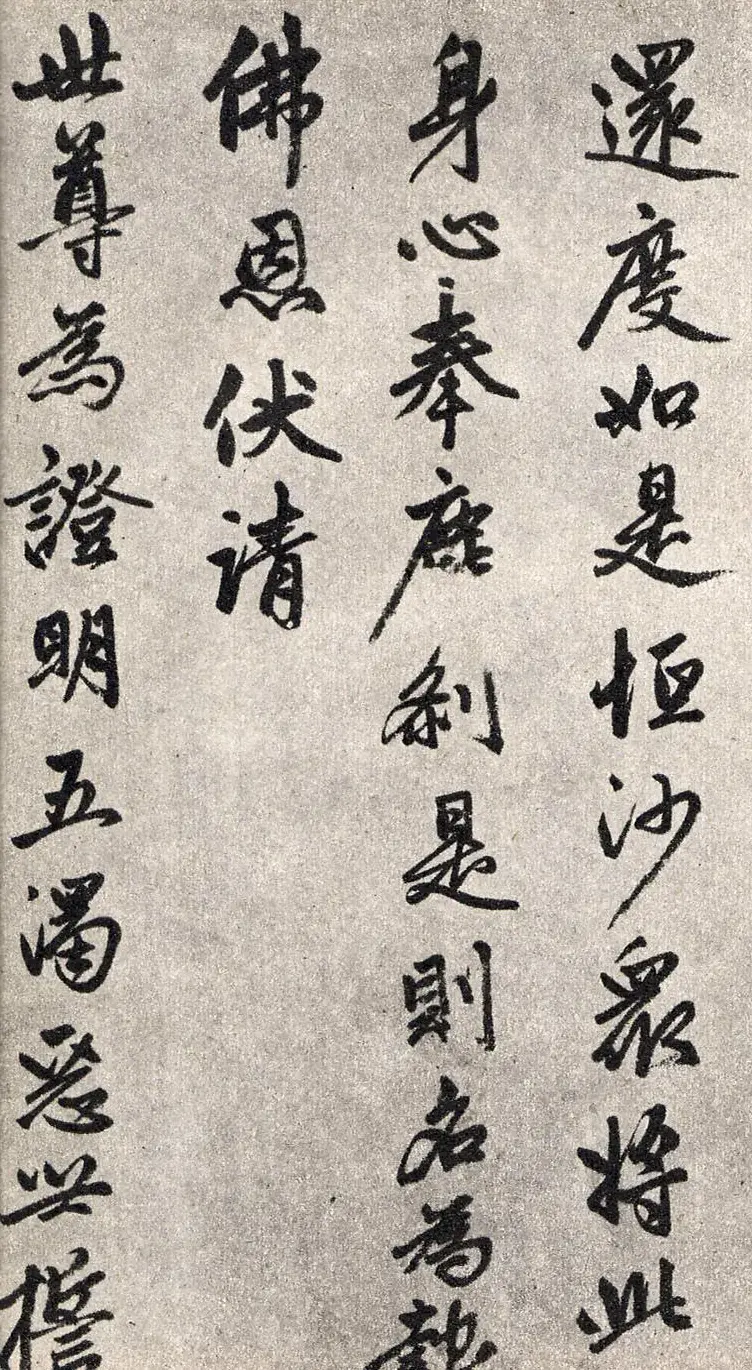 還度如是恒沙衆將此
身心奉塵刹是則名為報
佛恩伏請
世尊為證明五濁惡世誓